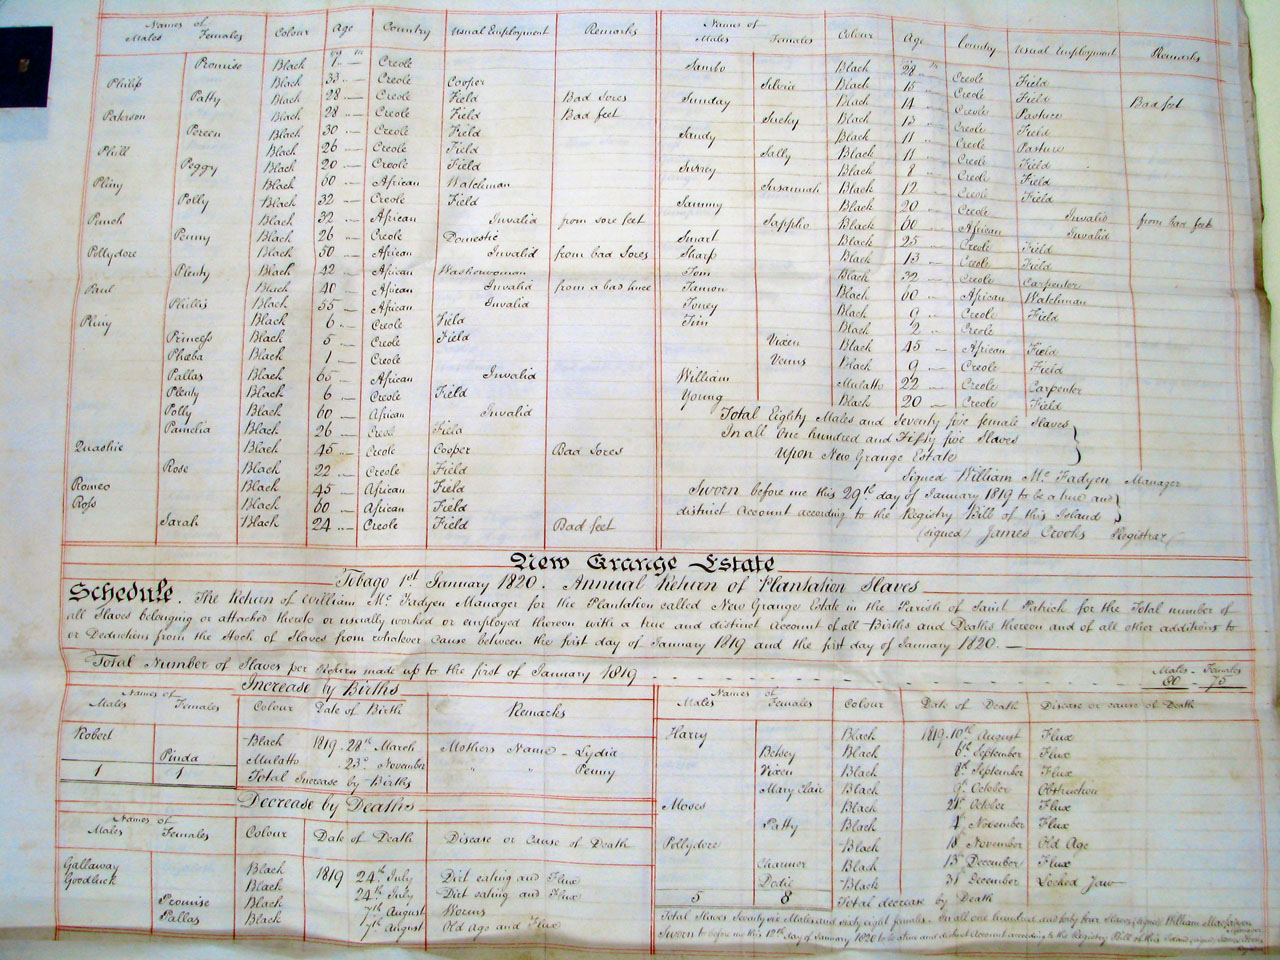 Names of Males Females Colour Age Country Usual Employment Remarks
Promise Black 1 Creole
Philip Black 33 Creole Cooper
Patty Black 28 Creole Field Bad Sores
Paterson Black 28 Creole Field Bad feet
Pereen Black 30 Creole Field
Phill Black 26 Creole Field
Peggy Black 20 Creole Field
Pliny Black 60 African Watchman
Polly Black 32 Creole Field
Punch Black 32 African Invalid from sore feet
Penny Black 26 Creole Domestic
Pollydore Black 50 African Invalid from bad Sores
Plenty Black 42 African Washerwoman
Paul Black 40 African Invalid from a bad knee
Phillis Black 55 African Invalid
Pliny Black 6 Creole Field
Princess Black 5 Creole Field
Phœba Black 1 Creole
Pallas Black 65 African Invalid
Plenty Black 6 Creole Field
Polly Black 60 African Invalid
Pamelia Black 26 Creole Field
Quashie Black 45 Creole Cooper Bad Sores
Rose Black 22 Creole Field
Romeo Black 45 African Field
Ross Black 60 African Field
Sarah Black 24 Creole Field Bad feet
Names of Males Females Colour Age Country Usual Employment Remarks
Sambo Black 28 Creole Field
Silvia Black 15 Creole Field Bad feet
Sunday Black 14 Creole Pasture
Sucky Black 13 Creole Field
Sandy Black 11 Creole Pasture
Sally Black 11 Creole Field
Surrey Black 8 Creole Field
Susannah Black 12 Creole Field
Sammy Black 20 Creole Invalid from bad feet
Sappho Black 60 African Invalid
Smart Black 25 Creole Field
Sharp Black 13 Creole Field
Tom Black 32 Creole Carpenter
Tamon Black 60 African Watchman
Toney Black 9 Creole Field
Tim Black 2 Creole
Vixen Black 45 African Field
Venus Black 9 Creole Field
William Mulatto 22 Creole Carpenter
Young Black 20 Creole Field
Total Eighty Males and Seventy five female Slaves
In all One hundred and Fifty five Slaves
Upon New Grange Estate
Signed William Mc. Fadyen Manager
Sworn before me this 29th day of January 1819 to be a true and
distinct Account according to the Registry Bill of this Island
(signed) James Crooks Registrar
New Grange Estate
Tobago 1st January 1820. Annual Return of Plantation Slaves
Schedule. The Return of William Mc. Fadyen Manager for the Plantation called New Grange Estate in the Parish of Saint Patrick for the Total number of
all Slaves belonging or attached thereto or usually worked or employed thereon with a true and distinct Account of all Births and Deaths thereon and of all other additions to
or Deductions from the Stock of Slaves from whatever cause between the first day of January 1819 and the first day of January 1820.
Total Number of Slaves per Return made up to the first of January 1819 Males 80 Females 75
Increase by Births
Names of Males Females Colour Date of Birth Remarks
Robert Black 1819 28th March Mothers Name - Lydia
Pinda Mulatto 23d November " " Penny
1 1 Total Increase by Births
Decrease by Deaths
Names of Males Females Colour Date of Death Disease or Cause of Death
Gallaway Black 1819 24th July Dirt eating and Flux
Goodluck Black 24th July Dirt eating and Flux
Promise Black 7th August Worms
Pallas Black 17th August Old Age and Flux
Names of Males Females Colour Date of Death Disease or cause of Death
Harry Black 1819. 10th August Flux
Betsey Black 6th September Flux
Vixen Black 8th September Flux
Mary Clair Black 9th October Obstruction
Moses Black 21st October Flux
Patty Black 4th November Flux
Pollydore Black 18th November Old Age
Charmer Black 13th December Flux
Dodie Black 31st December Locked Jaw
5 8 Total decrease by Death
Total Slaves Seventy six Males and sixty eight females. In all one hundred and forty four Slaves (signed) William MacFadyen
Sworn to before me this 12th day of January 1820 to be a true and distinct Account according to the Registry Bill of this Island